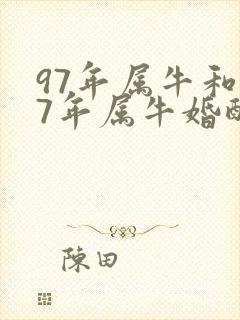 97年属牛和
7年属牛婚配
陳田